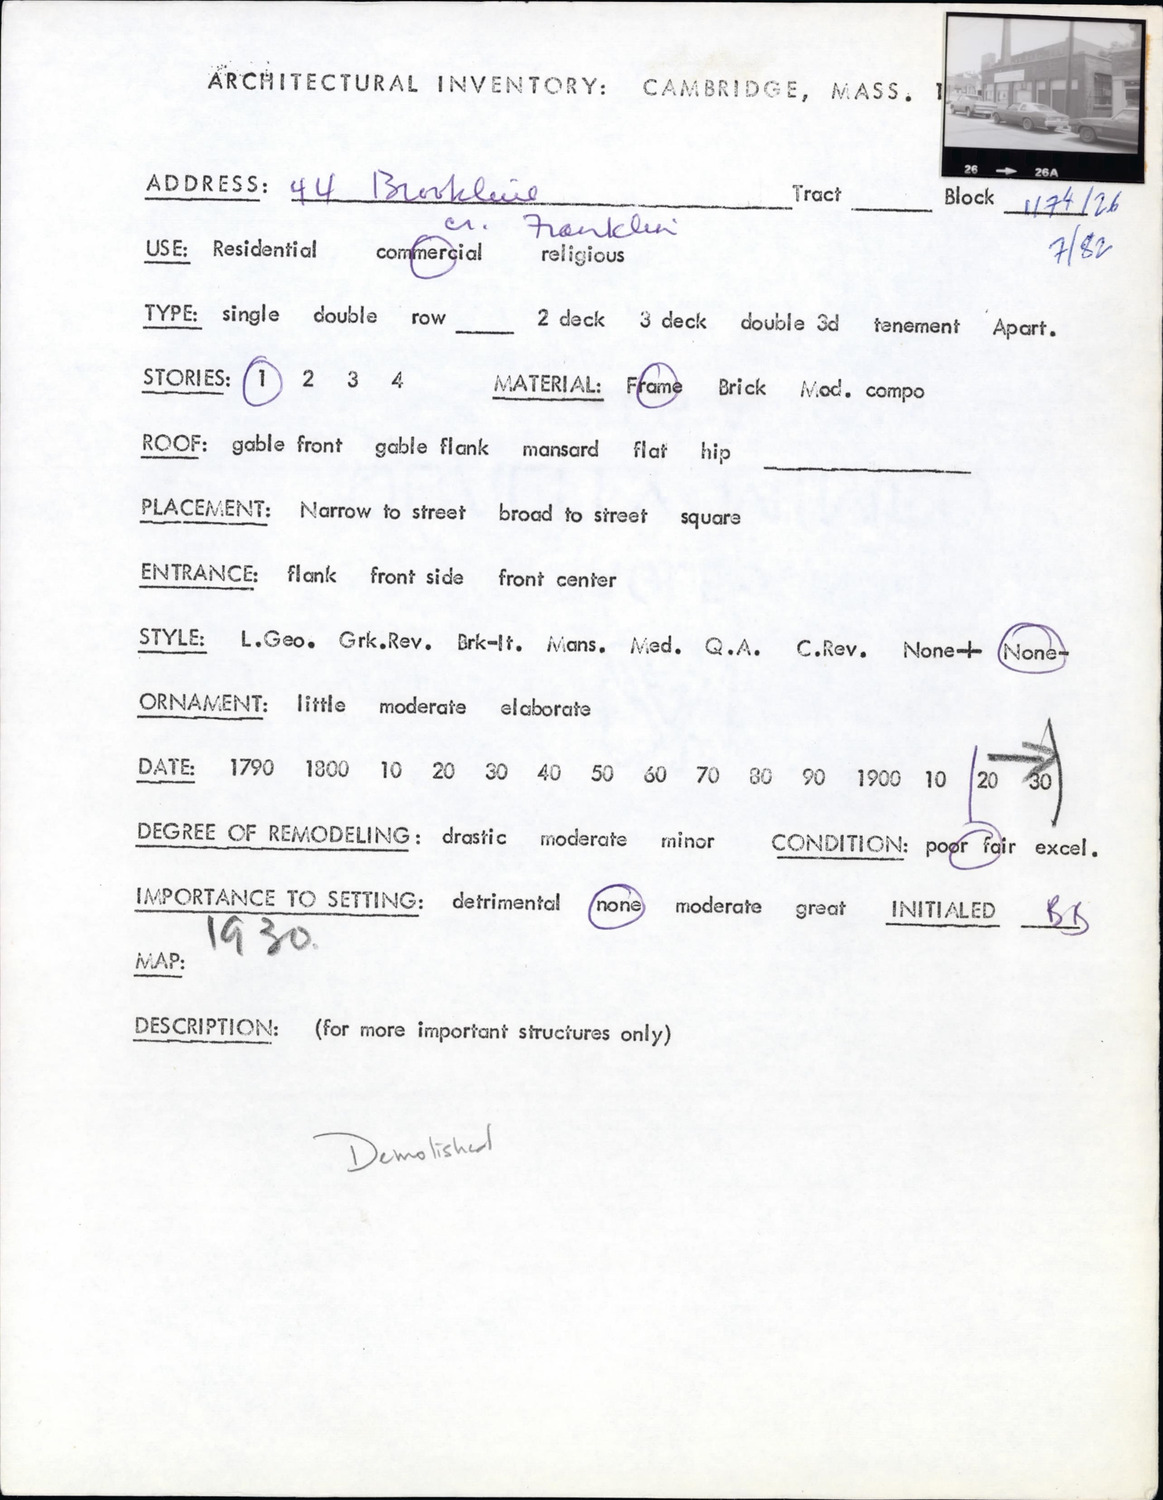 ARCHITECTURAL INVENTORY: CAMBRIDGE, MASS. 1
26 → 26A
ADDRESS: 44 Brookline Tract ____ Block 1174/26
cr. Franklin
7/82
USE: Residential commercial religious
TYPE: single double row ____ 2 deck 3 deck double 3d tenement Apart.
STORIES: 1 2 3 4 MATERIAL: Frame Brick Mod. compo
ROOF: gable front gable flank mansard flat hip ____
PLACEMENT: Narrow to street broad to street square
ENTRANCE: flank front side front center
STYLE: L.Geo. Grk.Rev. Brk-It. Mans. Med. Q.A. C.Rev. None+ None-
ORNAMENT: little moderate elaborate
DATE: 1790 1800 10 20 30 40 50 60 70 80 90 1900 10 20 30
DEGREE OF REMODELING: drastic moderate minor CONDITION: poor fair excel.
IMPORTANCE TO SETTING: detrimental none moderate great INITIALED BB
1930.
MAP:
DESCRIPTION: (for more important structures only)
Demolished